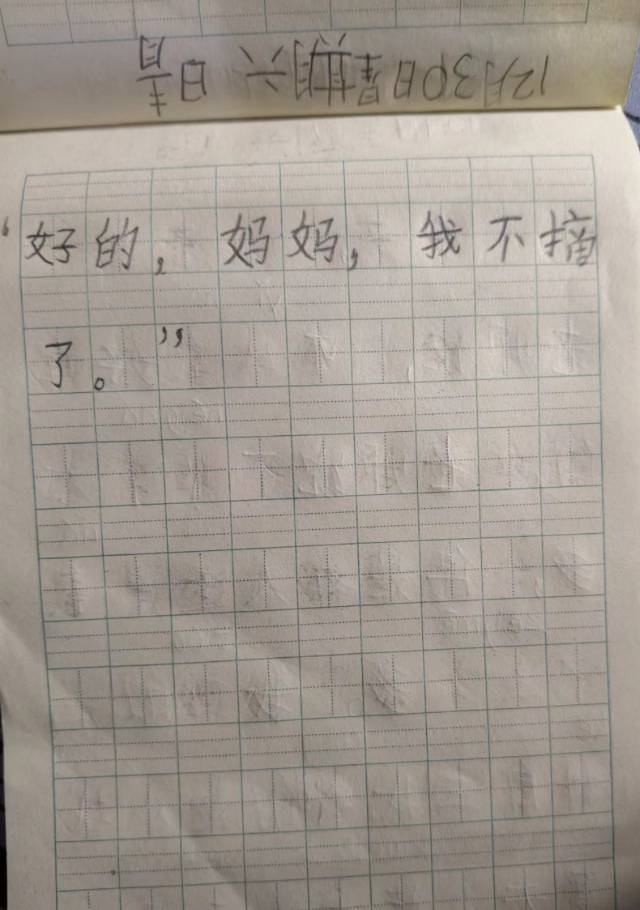 12月30日 星期六 晴
“好的，妈妈，我不摘
了。”